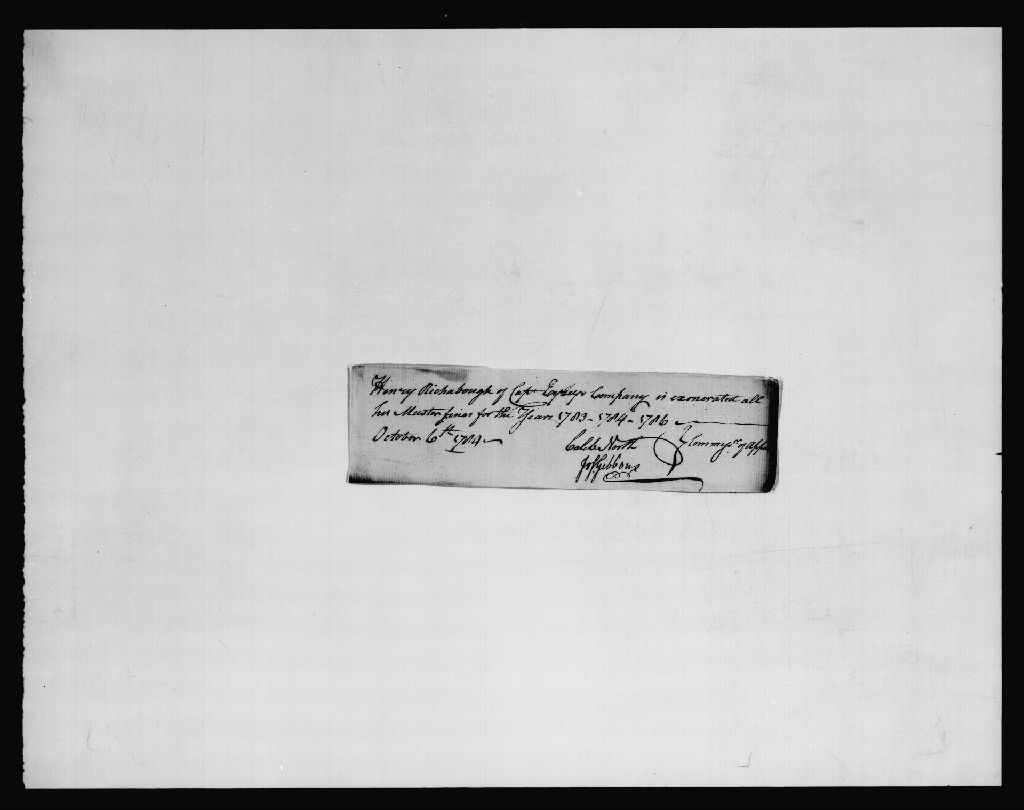 Henry Rickabough of Capt Company is exonerated all
his Muster fines for the Years 1783 - 1784 - 1786
October 6th 1784
Caleb North } Commrs. of Appl
Jos Gibbons